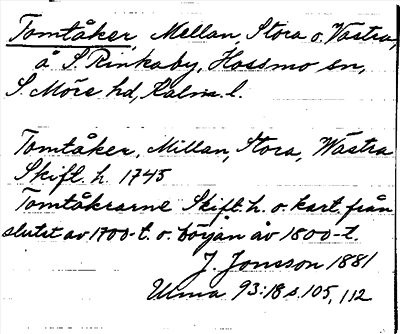 Tomtåker, Mellan, Stora o. Västra,
å S. Rinkaby, Hossmo sn,
S. Möre hd, Kalm. l.
Tomtåker, Millan, Stora, Wästra
Skift. h. 1745
Tomtåkrarne Skift. h. o. kart. från
slutet av 1700-t. o. början av 1800-t.
J. Jonsson 1881
Uma 93:18 s. 105, 112